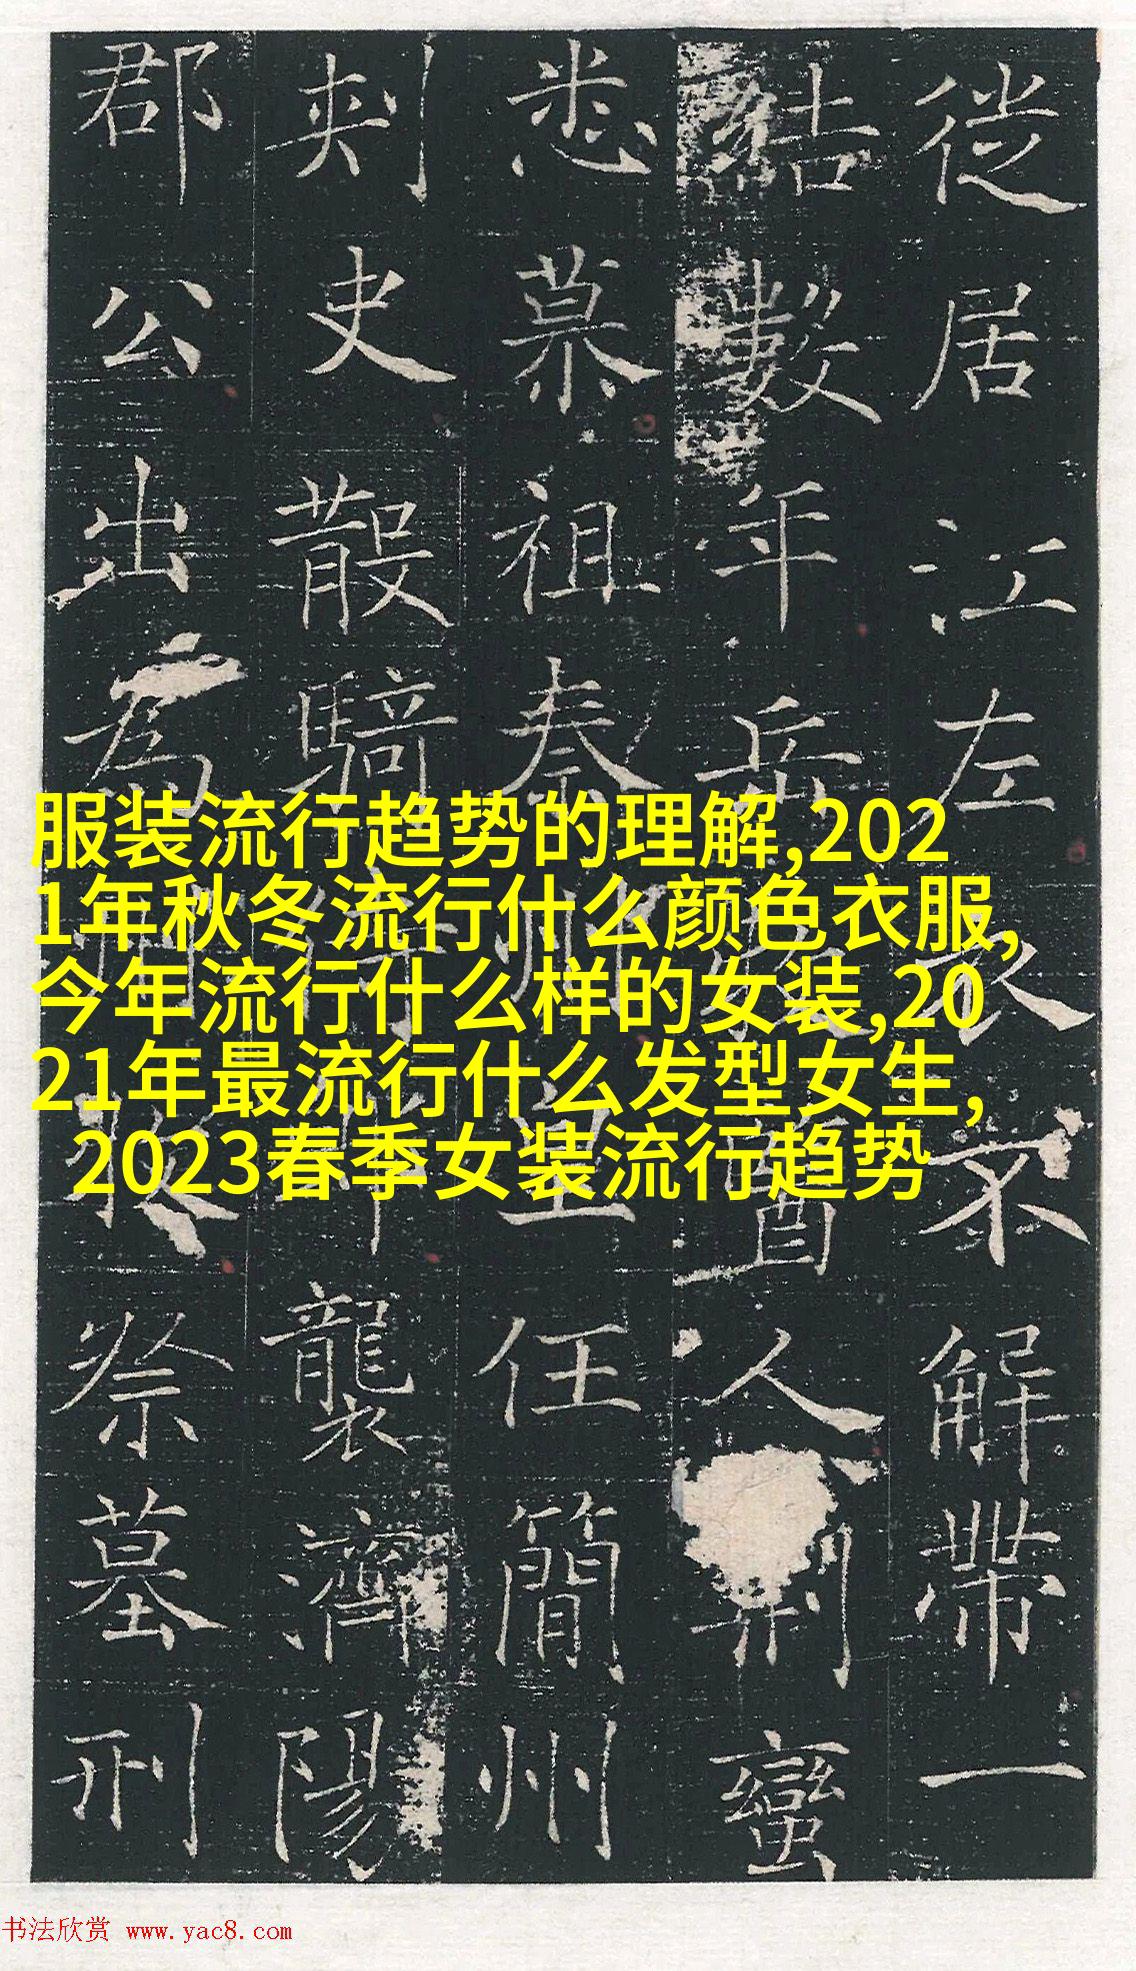 徙居江左衣不解帶一
數年岳酋人制蠻
悉慕祖秦州皇任簡州
刺史散騎侍襲濟陽
郡公出為祭墓刑
服装流行趋势的理解,202
1年秋冬流行什么颜色衣服,
今年流行什么样的女装,20
21年最流行什么发型女生,
2023春季女装流行趋势
书法欣赏 www.yac8.com